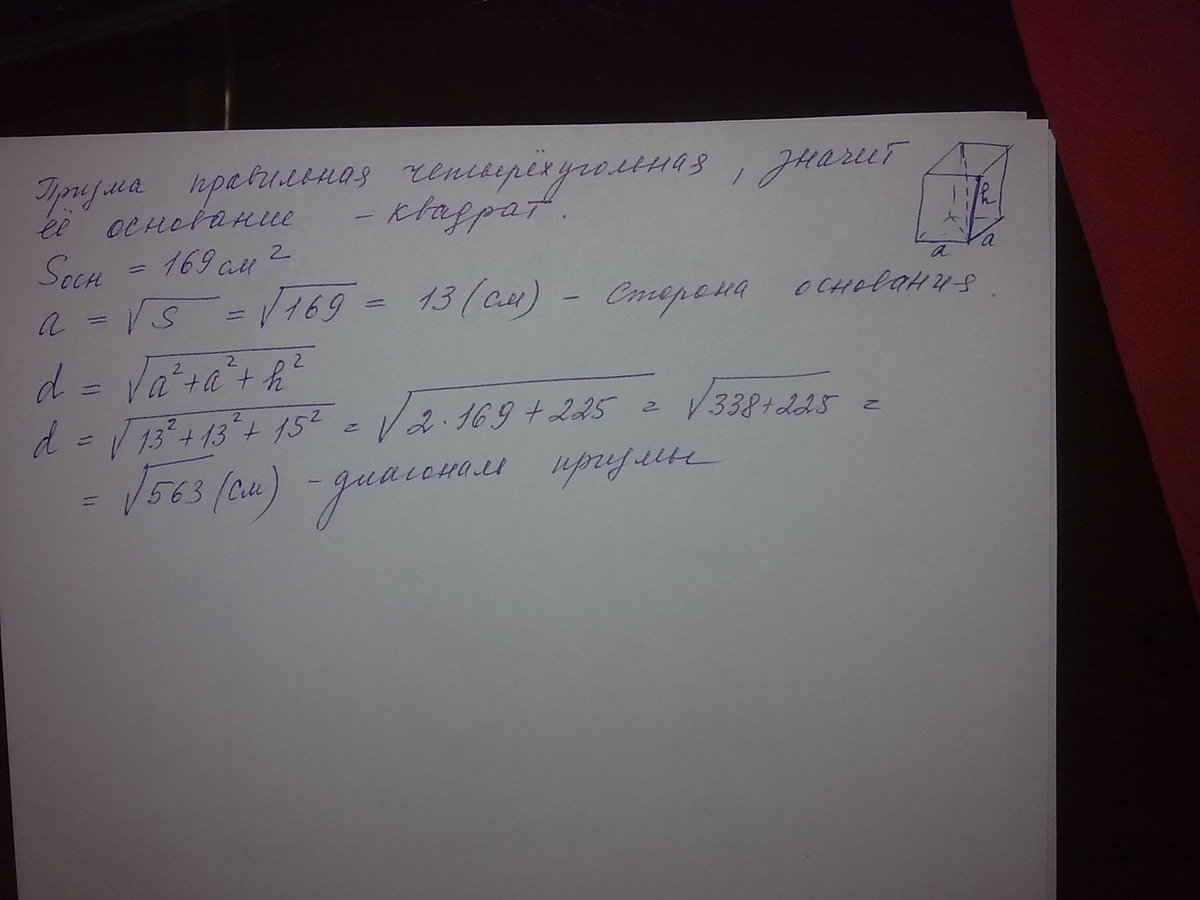 Призма правильная четырёхугольная, значит
её основание – квадрат.
Sосн = 169 см²
a = √S = √169 = 13 (см) – сторона основания.
d = √a²+a²+h²
d = √13²+13²+15² = √2·169+225 = √338+225 =
= √563 (см) – диагональ призмы
h
a
a